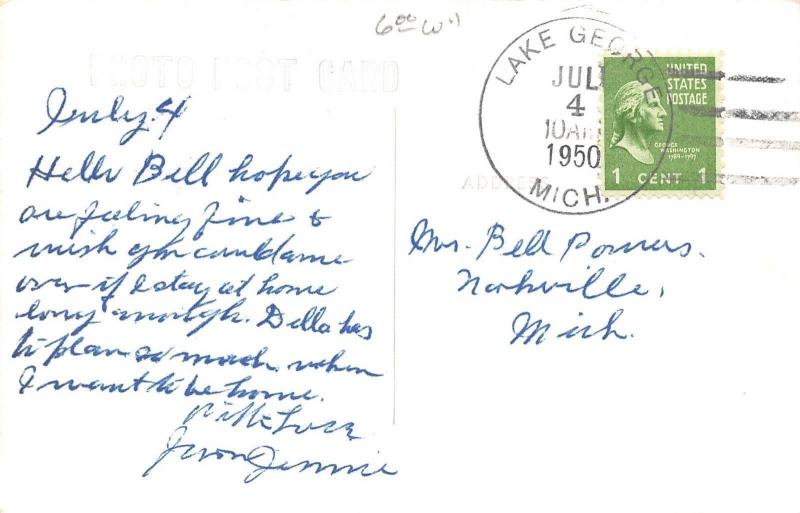 6⁰⁰ W
PHOTO POST CARD
LAKE GEORGE
JUL
4
10AM
1950
MICH.
UNITED
STATES
POSTAGE
GEORGE
WASHINGTON
1789-1797
1 CENT 1
ADDRESS
July 4
Hello Bell hope you
are feeling fine &
wish you could come
over if I stay at home
long enough. Della has
to plan so much when
I want to be home.
with Love
Jennie
Mr. Bell Powers.
Nashville,
Mich.